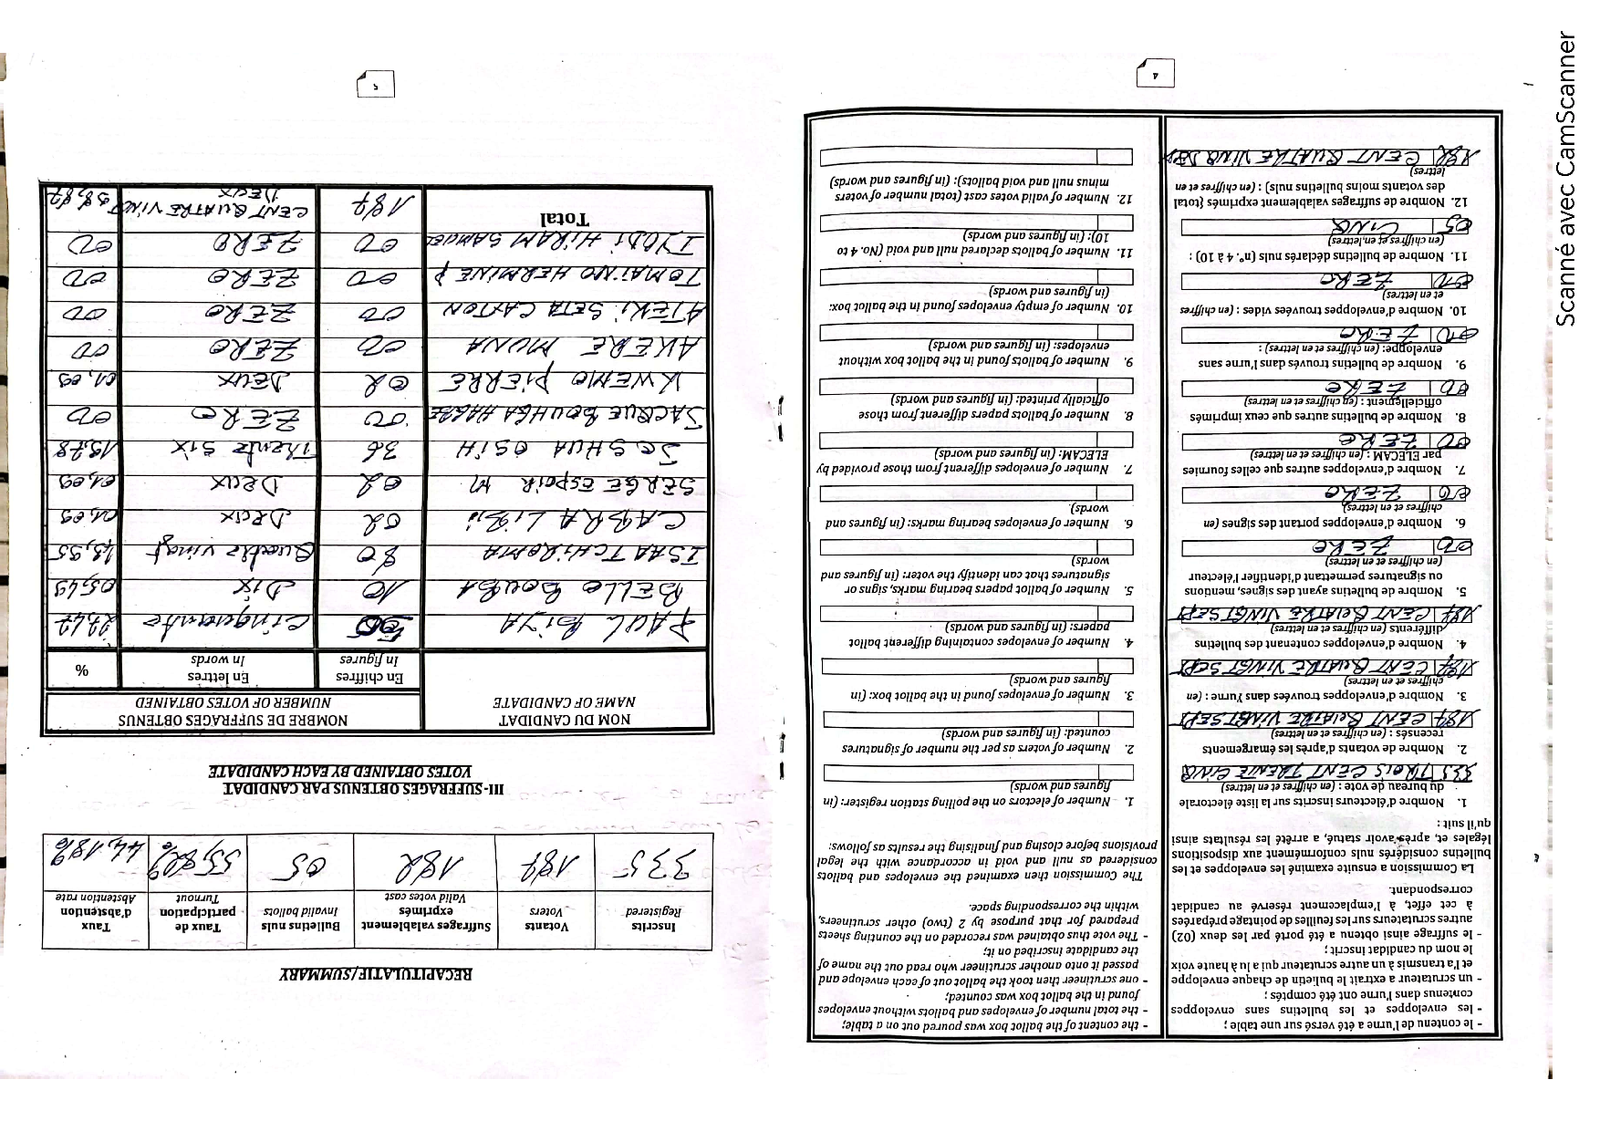 - le contenu de l'urne a été versé sur une table ;
- les enveloppes et les bulletins sans enveloppes
contenus dans l'urne ont été comptés ;
- un scrutateur a extrait le bulletin de chaque enveloppe
et l'a transmis à un autre scrutateur qui a lu à haute voix
le nom du candidat inscrit ;
- le suffrage ainsi obtenu a été porté par les deux (02)
autres scrutateurs sur les feuilles de pointage préparées
à cet effet, à l'emplacement réservé au candidat
correspondant.
La Commission a ensuite examiné les enveloppes et les
bulletins considérés nuls conformément aux dispositions
légales et, après avoir statué, a arrêté les résultats ainsi
qu'il suit :
1. Nombre d'électeurs inscrits sur la liste électorale
du bureau de vote : (en chiffres et en lettres)
335 TROIS CENT TRENTE CINQ
2. Nombre de votants d'après les émargements
recensés : (en chiffres et en lettres)
187 CENT QUATRE VINGT SEPT
3. Nombre d'enveloppes trouvées dans l'urne : (en
chiffres et en lettres)
187 CENT QUATRE VINGT SEPT
4. Nombre d'enveloppes contenant des bulletins
différents (en chiffres et en lettres)
187 CENT QUATRE VINGT SEPT
5. Nombre de bulletins ayant des signes, mentions
ou signatures permettant d'identifier l'électeur
(en chiffres et en lettres)
00 ZERO
6. Nombre d'enveloppes portant des signes (en
chiffres et en lettres)
00 ZERO
7. Nombre d'enveloppes autres que celles fournies
par ELECAM : (en chiffres et en lettres)
00 ZERO
8. Nombre de bulletins autres que ceux imprimés
officiellement : (en chiffres et en lettres)
00 ZERO
9. Nombre de bulletins trouvés dans l'urne sans
enveloppe: (en chiffres et en lettres) :
00 ZERO
10. Nombre d'enveloppes trouvées vides : (en chiffres
et en lettres)
00 ZERO
11. Nombre de bulletins déclarés nuls (n°. 4 à 10) :
(en chiffres et en lettres)
05 CINQ
12. Nombre de suffrages valablement exprimés (total
des votants moins bulletins nuls) : (en chiffres et en
lettres)
182 CENT QUATRE VING
- the content of the ballot box was poured out on a table;
- the total number of envelopes and ballots without envelopes
found in the ballot box was counted;
- one scrutineer then took the ballot out of each envelope and
passed it onto another scrutineer who read out the name of
the candidate inscribed on it;
- The vote thus obtained was recorded on the counting sheets
prepared for that purpose by 2 (two) other scrutineers,
within the corresponding space.
The Commission then examined the envelopes and ballots
considered as null and void in accordance with the legal
provisions before closing and finalising the results as follows:
1. Number of electors on the polling station register: (in
figures and words)
2. Number of voters as per the number of signatures
counted: (in figures and words)
3. Number of envelopes found in the ballot box: (in
figures and words)
4. Number of envelopes containing different ballot
papers: (in figures and words)
5. Number of ballot papers bearing marks, signs or
signatures that can identify the voter: (in figures and
words
6. Number of envelopes bearing marks: (in figures and
words)
7. Number of envelopes different from those provided by
ELECAM: (in figures and words)
8. Number of ballots papers different from those
officially printed: (in figures and words)
9. Number of ballots found in the ballot box without
envelopes: (in figures and words)
10. Number of empty envelopes found in the ballot box:
(in figures and words)
11. Number of ballots declared null and void (No. 4 to
10): (in figures and words)
12. Number of valid votes cast (total number of voters
minus null and void ballots): (in figures and words)
4
RECAPITULATIF/SUMMARY
Inscrits
Registered
Votants
Voters
Suffrages valablement
exprimés
Valid votes cast
Bulletins nuls
Invalid ballots
Taux de
participation
Turnout
Taux
d'abstention
Abstention rate
335 187 182 05 55,82% 44,18%
III-SUFFRAGES OBTENUS PAR CANDIDAT
VOTES OBTAINED BY EACH CANDIDATE
NOM DU CANDIDAT
NAME OF CANDIDATE
NOMBRE DE SUFFRAGES OBTENUS
NUMBER OF VOTES OBTAINED
En chiffres
In figures
En lettres
In words
%
PAUL BIYA 50 Cinquante 27,47
BELLO BOUBA 10 Dix 05,49
ISAA TCHIROMA 80 Quatre vingt 43,95
CABRA LiBii 02 Deux 01,09
SERGE ESPOIR M 02 Deux 01,09
JOSHUA OSIH 36 Thente Six 19,78
JACQUE BOUHGA 00 ZERO 00
KWEMO PIERRE 02 DEUX 01,09
AKERE MUNA 00 ZERO 00
ATEKI SETA CAXTON 00 ZERO 00
TOMAINO HERMINE P 00 ZERO 00
IYODI HIRAM SAMUEL 00 ZERO 00
Total 187 CENT QUATRE VINGT DEUX
5
Scanné avec CamScanner